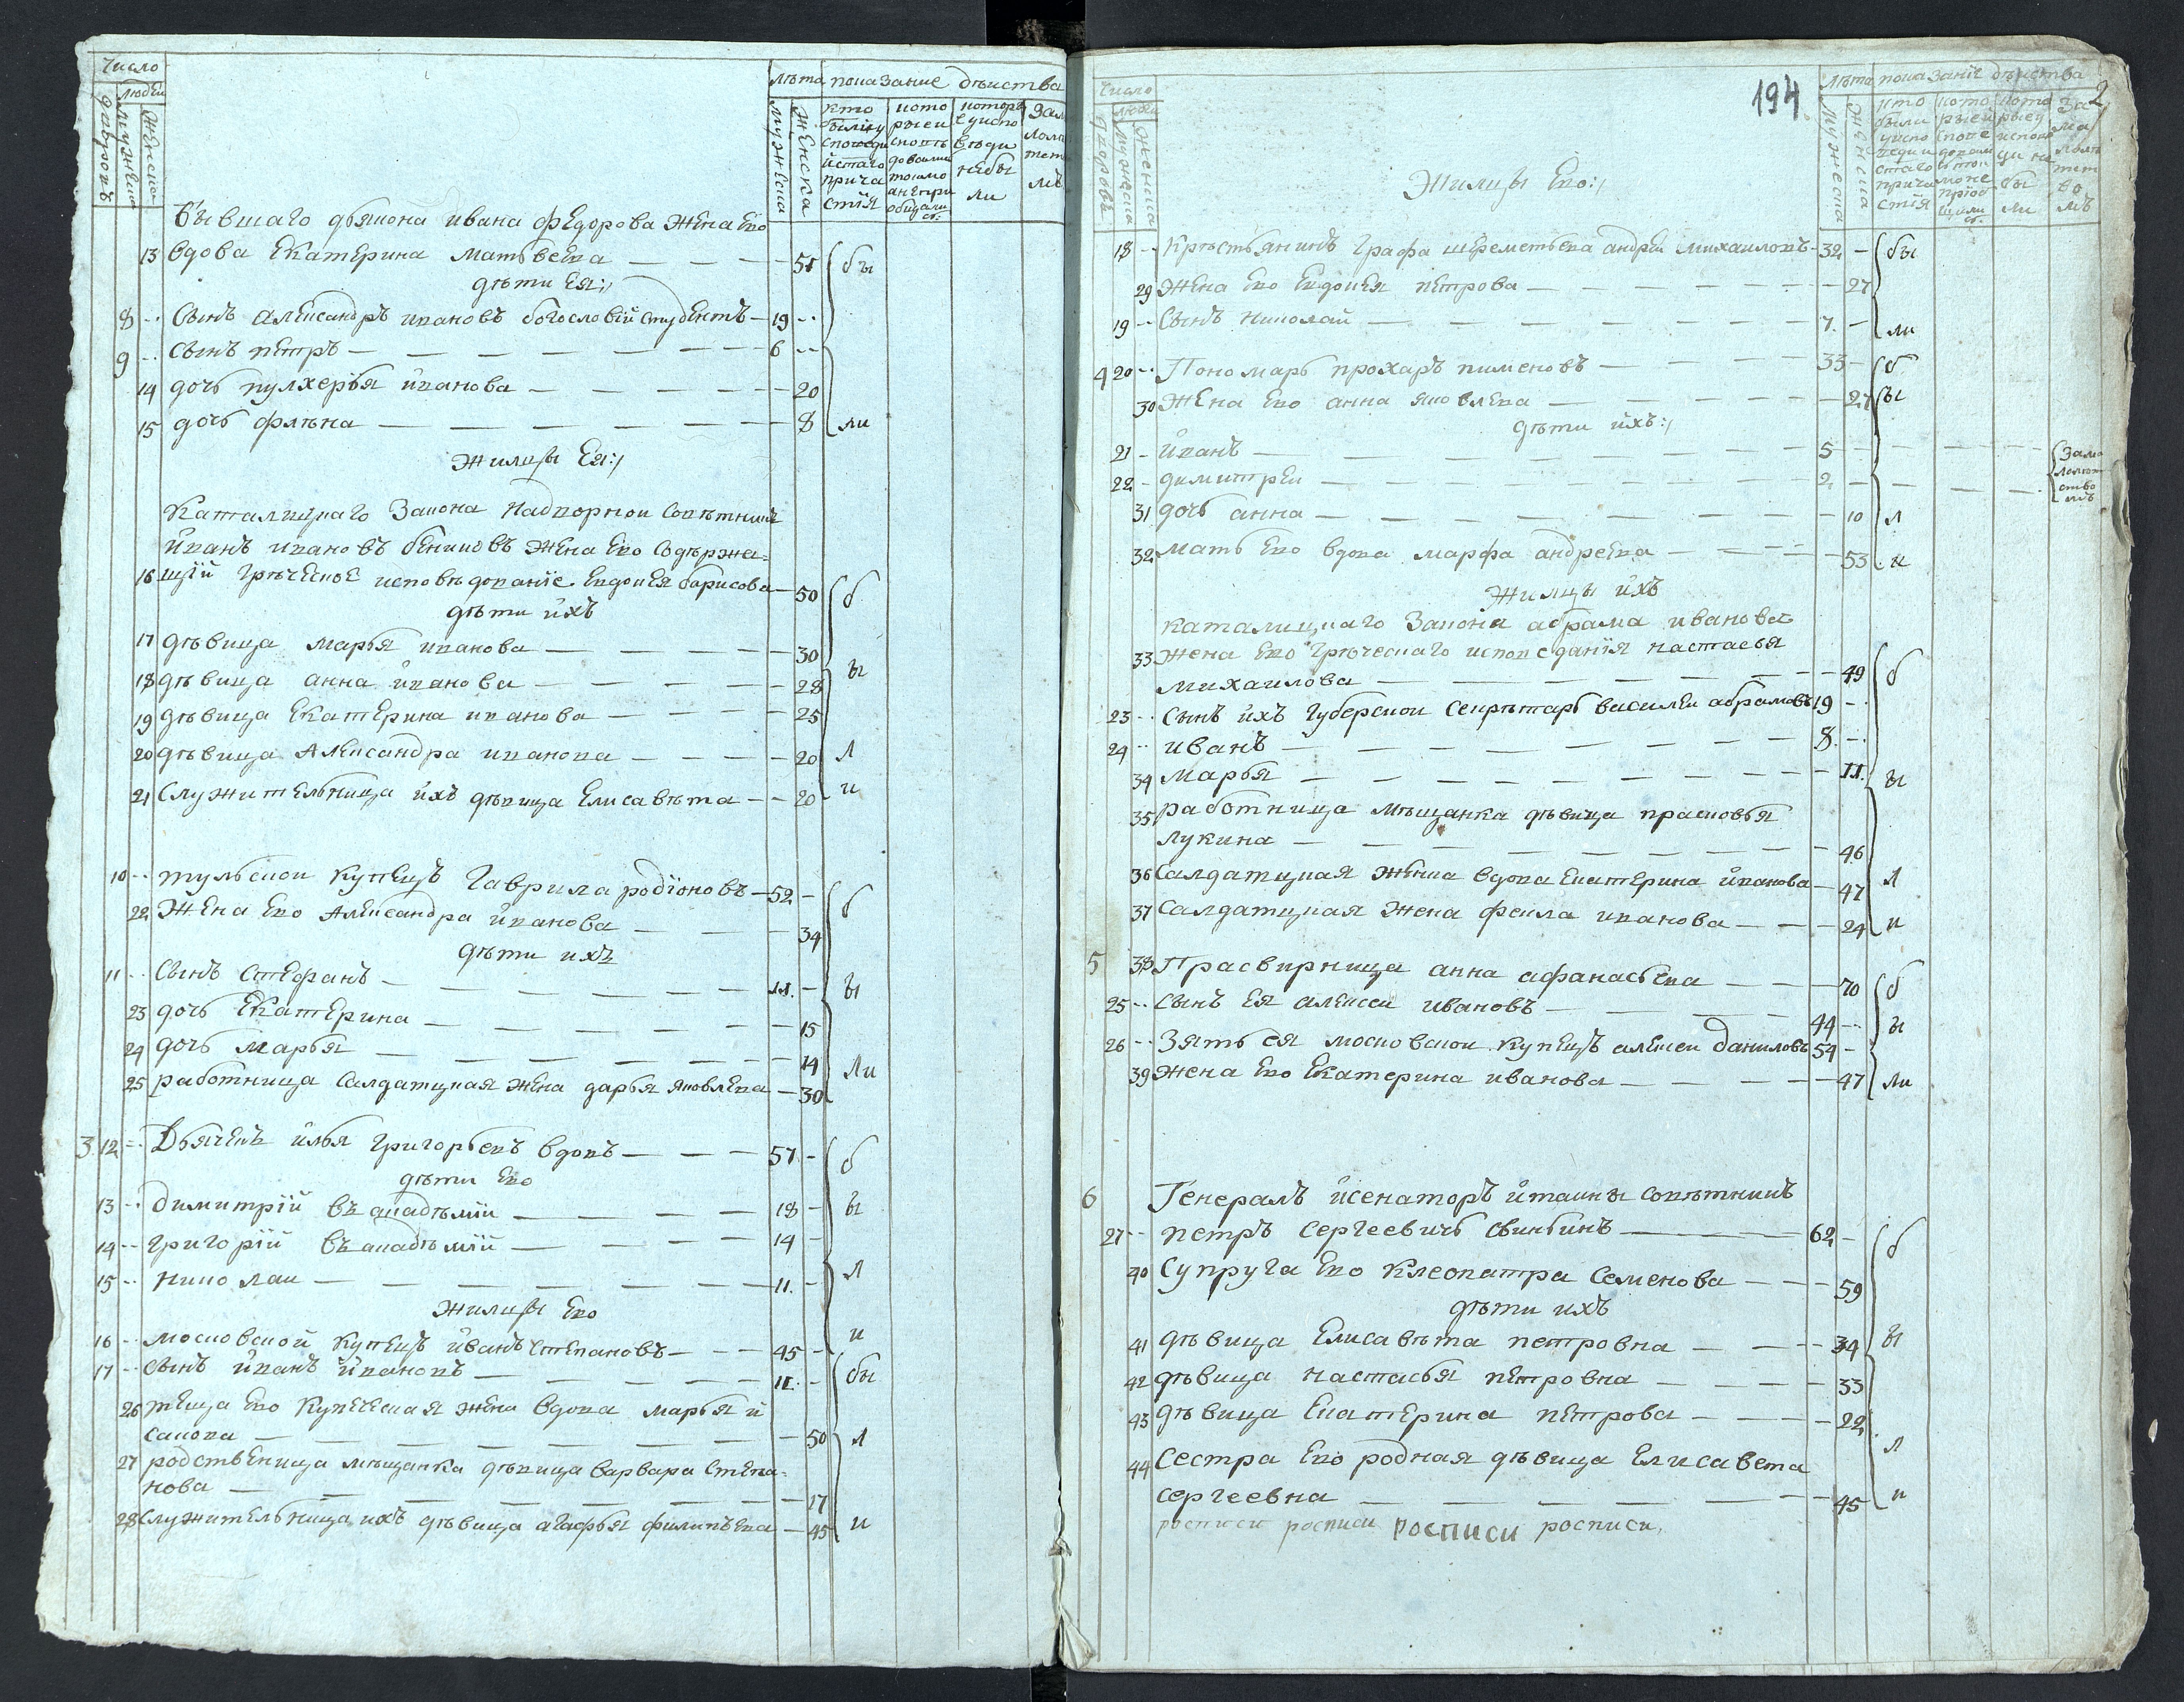 Число
людеи
дворовъ
мужеска
женска
лѣта показание дѣиства
мужеска
женска
кто
были у
споведи
и стаго
прича
стiя
кото
рыеи
спове
довали
токмо
а непри
общали
сь:
которы
е у испо
веди
небы
ли
Бывшаго дьякона Ивана Федорова жена Ево
13 вдова Екатерина Матвеева — — — 51 бы
дѣти Ея:/
8 -- Сынъ Александръ Ивановъ богословiи студентъ — 19 --
9 -- Сынъ петръ — — — — — 6 --
14 дочь пулхерья Иванова — — — — 20
15 дочь фл​ѣна — — — — — 8 ли
жильцы Ея:/
Каталицкаго Закона Надворнои Советникъ
Иванъ ивановъ бениковъ жена Ево Содержа=
16 щiй грѣческое исповѣдованiе Евдокея барисова — 50 б
дѣти ихъ
17 дѣвица марья иванова — — — 30
18 дѣвица анна иванова — — — 28 ы
19 дѣвица Екатерина иванова — — — 25
20 дѣвица Александра иванова — — — 20 л
21 Служительница ихъ дѣвица Елисавѣта — 20 и
10 -- тульскои купецъ Гаврила родiоновъ — 52 - б
22 Жена Ево Александра иванова — — 34
дѣти ихъ
11 -- Сынъ Стефанъ — — — — 11. - ы
23 дочь Екатерина — — — — 15
24 дочь марья — — — — 14 ли
25 работница Салдатцкая жена дарья яковлева — 30
3 12 -- Дьячекъ илья григорьевъ вдовъ — — — 57 - б
дѣти Ево
13 -- димитрiй въ акадѣмiи — — — — 18 - ы
14 -- григорiй въ акадѣмiй — — — — 14 -
15 -- николаи — — — — — 11. - л
жильцы Ево
16 -- московской купецъ иванъ Степановъ — — 45 - и
17 -- сынъ иванъ ивановъ — — — — 11. - бы
26 теща Ево Купеческая жена вдова марья и
сакова — — — — — — 50 л
27 родственица мѣщанка дѣвица варвара Степа=
нова — — — — — — 17
28 Служительница ихъ дѣвица агафья филипъева — 45 и
194
2
Число
людеи
дворовъ
мужеска
женска
лѣта показанiе дѣиства
мужеска
женска
кто
были
у испо
веди и
стаго
прича
стiя
кото
рыеи
спове
довали
ь ток
мо не
прiоб
щали
сь:
кото
рыеу
испове
ди не
бы
ли
за
ма
лолѣ
тст
во
мъ
Жильцы Ево:/
18 -- Крѣстьянинъ Графа шереметьева андреи михаиловъ - 32 - бы
29 Жена Ево Евдокея петрова — — — — 27
19 -- Сынъ николай — — — — — 7. - ли
4 20 -- Пономарь прохаръ пименовъ — — — 33 - б
30 Жена Ево анна яковлева — — — — 27 ы
дѣти ихъ:/
21 - иванъ — — — — — 5 - — — — Зама
22 - димитреи — — — — — 2. - — — — лолѣт
ство
мъ
31 дочь анна — — — — — 10 л
32 мать Ево вдова марфа андреева — — — 53 и
жильцы ихъ
каталицкаго Закона абрама иванова
33 жена Ево грѣческаго исповеданiя настасья
михаилова — — — — — 49 б
23 -- Сынъ ихъ губерскои секрѣтарь василеи абрамовъ 19 -
24 -- иванъ — — — — — 8. -
34 марья — — — — — 11. ы
35 работница мѣщанка дѣвица прасковья
лукина — — — — — 46
36 Салдатцкая женка вдова Екатерина иванова — 47 л
37 Салдатцкая жена фекла иванова — — — 24 и
5 38 Прасвирница анна афанасьева — — — 70 б
25 -- Сынъ Ея алексеи ивановъ — — — 44 -- ы
26 -- Зять ея московскои купецъ алексеи даниловъ 54 -
39 жена Ево Екатерина иванова — — — — 47 ли
6 Генералъ исенаторъ итаины советникъ
27 -- петръ сергеевичь свиньинъ — — 62 - б
40 Супруга Ево клеопатра семенова — — — 59
дѣти ихъ
41 дѣвица Елисавѣта петровна — — — 34 ы
42 дѣвица настасья петровна — — — — 33
43 дѣвица Екатерина петрова — — — 22
44 Сестра Ево родная дѣвица Елисавета л
сергеевна — — — — — 45 и
росписи росписи росписи росписи.